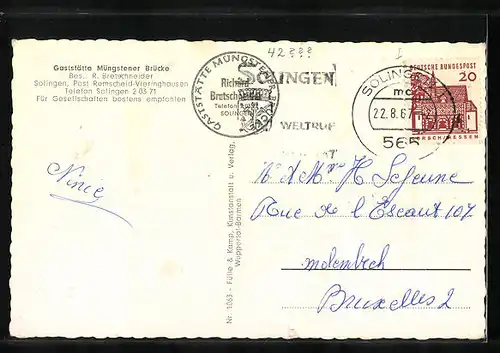 Gaststätte Müngstener Brücke
Bes.: R. Bretschneider
Solingen, Post Remscheid-Vieringhausen
Telefon Solingen 2 03 71
Für Gesellschaften bestens empfohlen
42???
GASTSTÄTTE MÜNGSTENER BRÜCKE
Richard
Bretschneider
Telefon
SOLINGEN
SOLINGEN
WELTRUF
SOLINGEN
22.8.67
565
DEUTSCHE BUNDESPOST
20
LORSCH/HESSEN
Ninie
Nr. 1063 - Fülle & Kamp, Kunstanstalt u. Verlag,
Wuppertal-Barmen
Mr & Mme H Lejeune
Rue de l'Escaut 107
molenbeek
Bruxelles 2